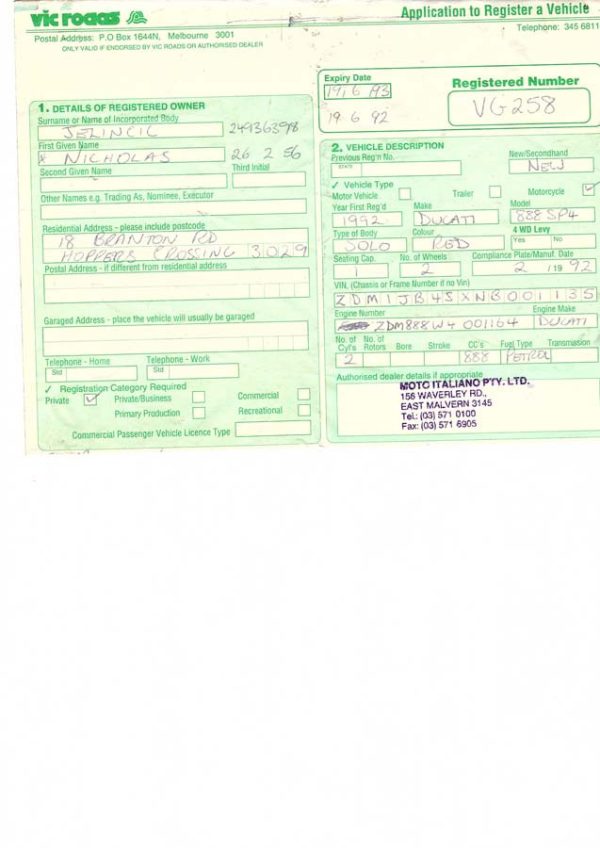 vic roads
Application to Register a Vehicle
Postal Address: P.O Box 1644N, Melbourne 3001
Telephone: 345 6811
ONLY VALID IF ENDORSED BY VIC ROADS OR AUTHORISED DEALER
Expiry Date
19 6 93
19 6 92
Registered Number
VG258
1. DETAILS OF REGISTERED OWNER
Surname or Name of Incorporated Body
JELINCIC
24936398
First Given Name
x NICHOLAS
26 2 56
Second Given Name
Third Initial
Other Names e.g. Trading As, Nominee, Executor
Residential Address - please include postcode
18 BRANTON RD
HOPPERS CROSSING 3029
Postal Address - if different from residential address
Garaged Address - place the vehicle will usually be garaged
Telephone - Home
Telephone - Work
Std
Std
✓ Registration Category Required
Private ✓
Private/Business
Commercial
Primary Production
Recreational
Commercial Passenger Vehicle Licence Type
2. VEHICLE DESCRIPTION
Previous Reg'n No.
New/Secondhand
STATE
NEW
✓ Vehicle Type
Motor Vehicle
Trailer
Motorcycle ✓
Year First Reg'd
Make
Model
1992
DUCATI
888 SP4
Type of Body
Colour
4 WD Levy
SOLO
RED
Yes
No
Seating Cap.
No. of Wheels
Compliance Plate/Manuf. Date
1
2
2 / 19 92
VIN, (Chassis or Frame Number if no Vin)
ZDM1JB4SXNB001135
Engine Number
Engine Make
ZDM888W4 001164
DUCATI
No. of Cyl's
No. of Rotors
Bore
Stroke
CC's
Fuel Type
Transmission
2
888
PETROL
Authorised dealer details if appropriate
MOTO ITALIANO PTY. LTD.
156 WAVERLEY RD.,
EAST MALVERN 3145
Tel.: (03) 571 0100
Fax: (03) 571 6905